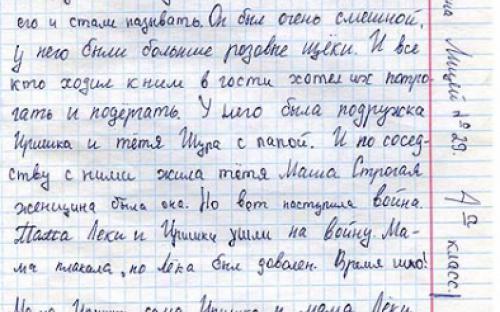 его и стали называть. Он был очень смешной.
У него были большие розовые щёки. И все
кто ходил к ним в гости хотел их потро-
гать и подергать. У него была подружка
Иришка и тётя Шура с папой. И по сосед-
ству с ними жила тётя Маша Строгая
женщина была она. Но вот поступила война.
Папа Лёки и Иришки ушли на войну. Ма-
ма плакала, но Лёка был доволен. Время шло!
Мама Иришки сама Иришка и мама Лёки
на Лицей № 29. 4 класс.